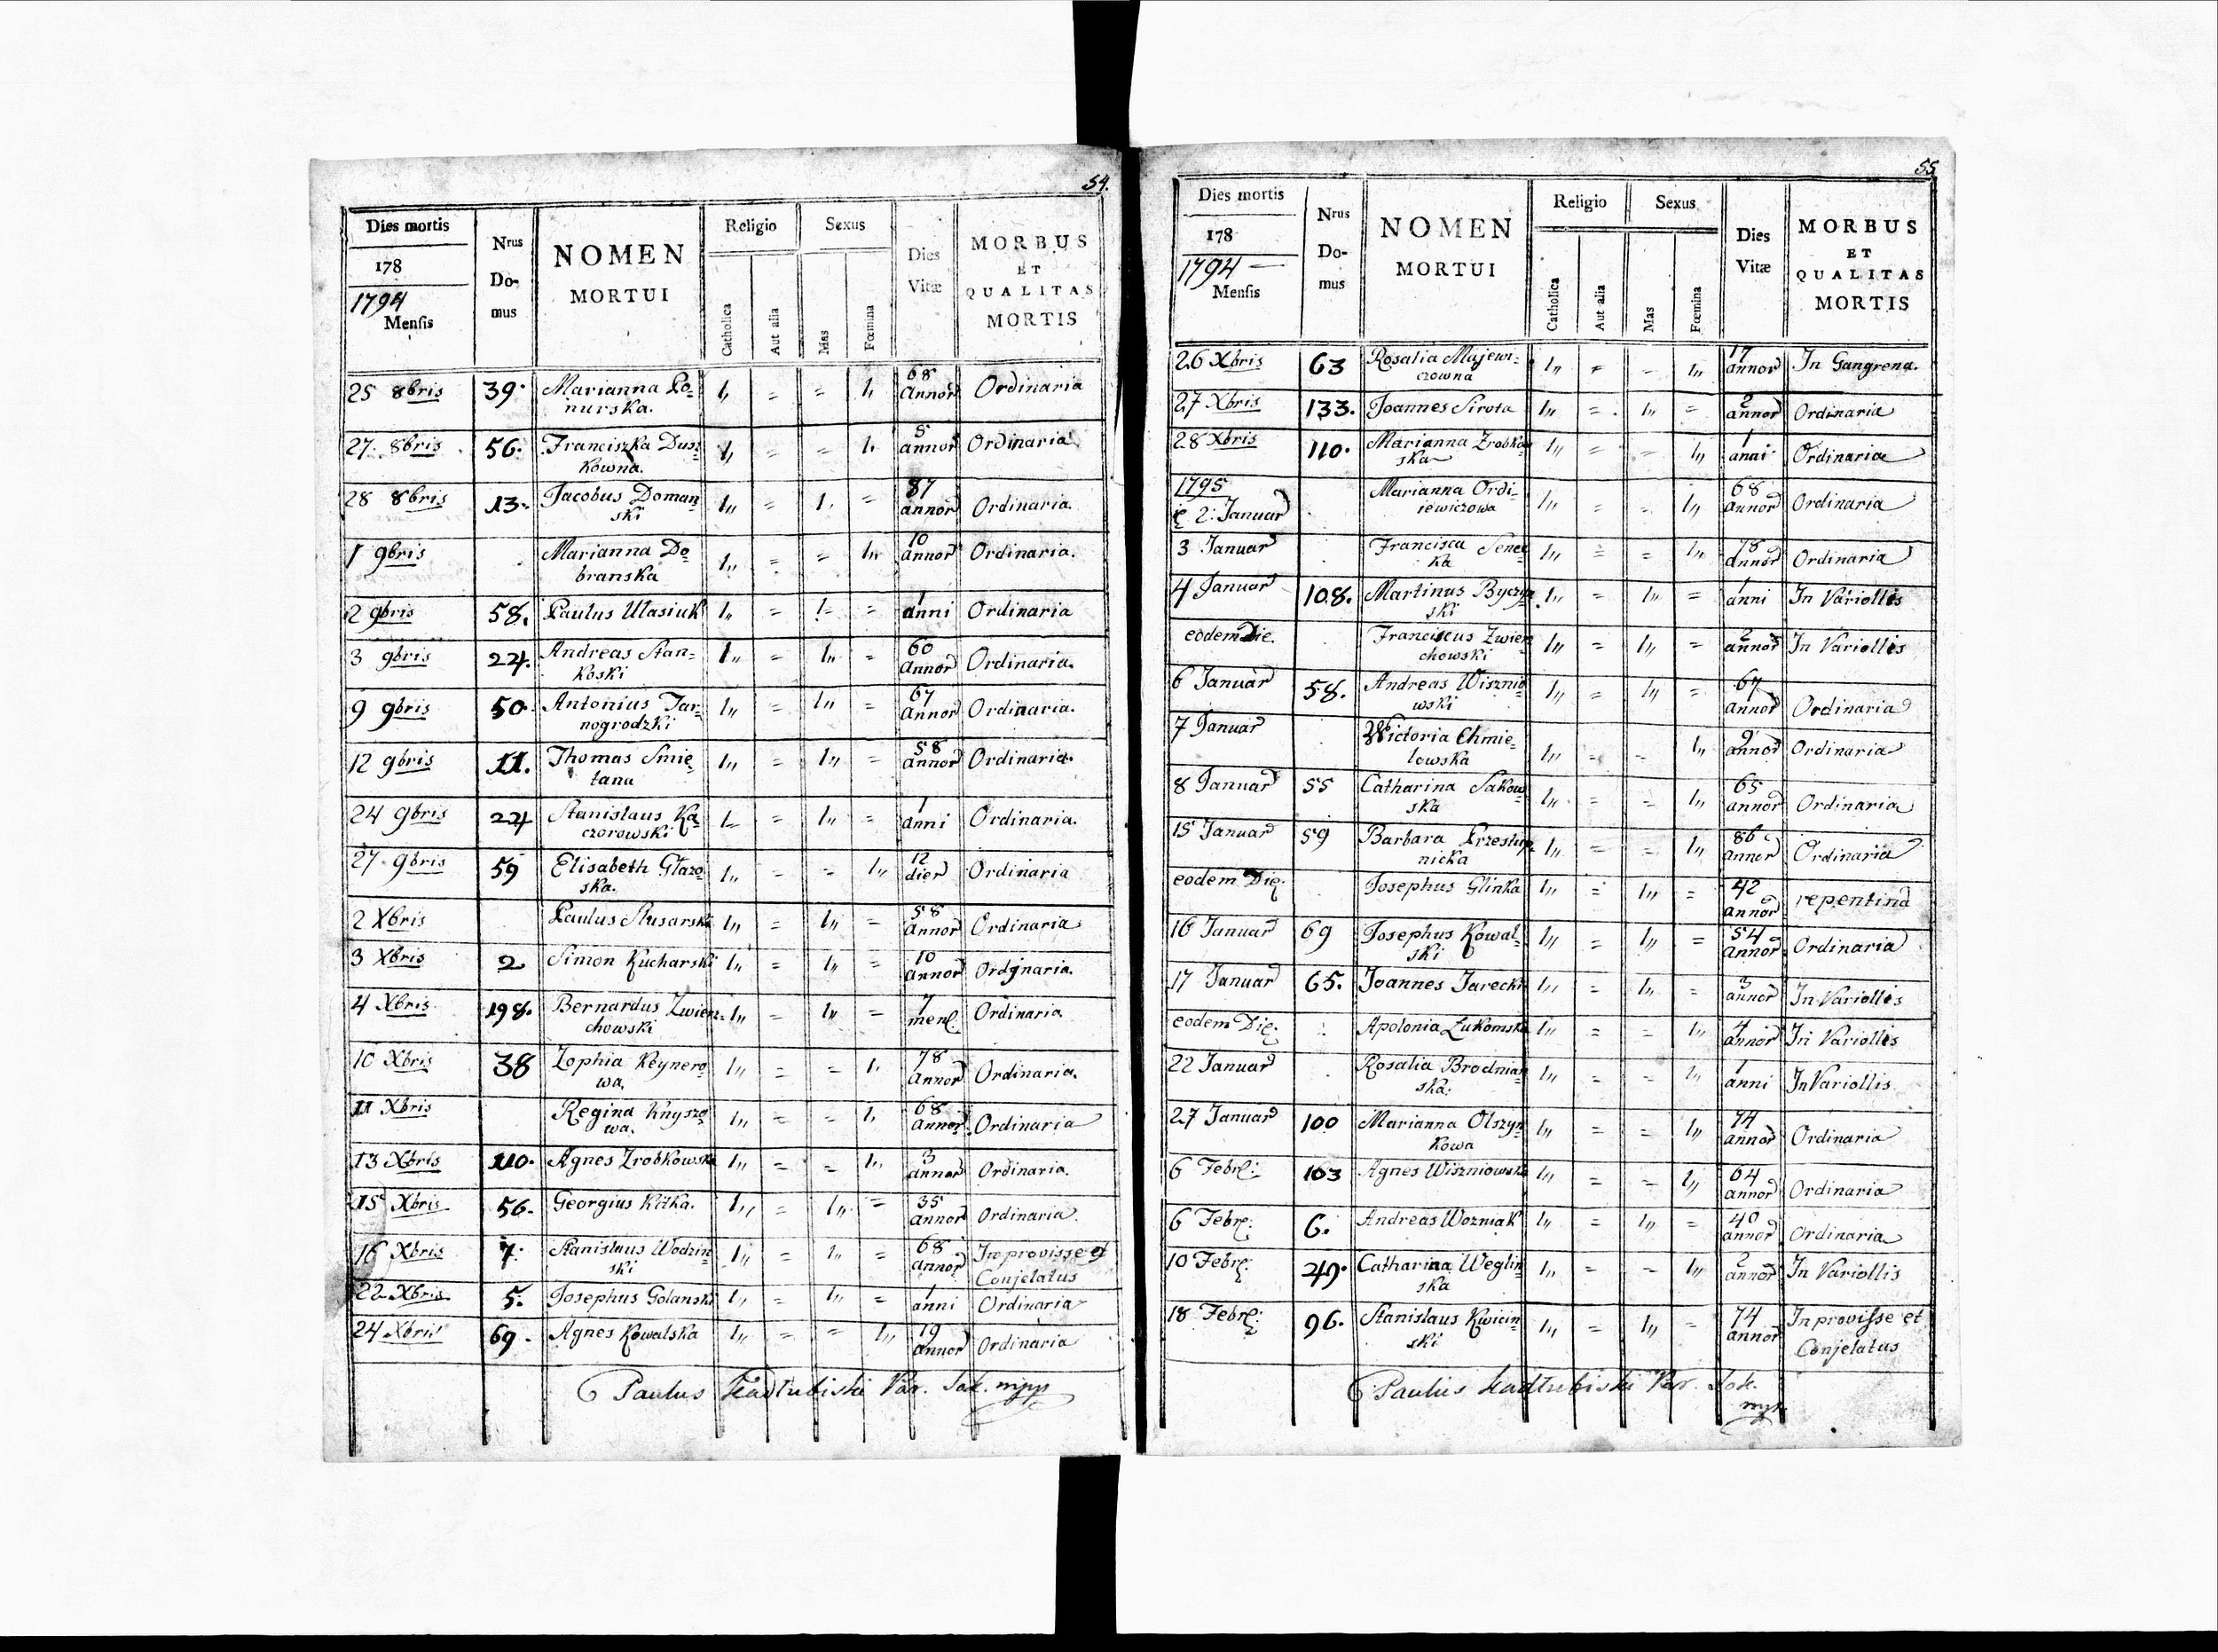 54.
Dies mortis Nrus Do- mus NOMEN MORTUI Religio Sexus Dies Vitæ MORBUS ET QUALITAS MORTIS
178
1794
Mensis Catholica Aut alia Mas Fœmina
25 8bris 39. Marianna Po= 1,, = = 1,, 68 Annor Ordinaria
nurska.
27. 8bris 56. Franciszka Dusz= 1,, = = 1,, 5 annor Ordinaria
kowna.
28 8bris 13. Jacobus Doman= 1,, = 1,, = 87 annor Ordinaria.
ski
1 9bris Marianna Do= 1,, = = 1,, 10 annor Ordinaria.
branska
2 9bris 58. Paulus Ulasiuk 1,, = 1,, = 1 anni Ordinaria
3 9bris 24. Andreas Stan= 1,, = 1,, = 60 Annor Ordinaria.
koski
9 9bris 50. Antonius Tar= 1,, = 1,, = 67 Annor Ordinaria.
nogrodzki
12 9bris 11. Thomas Smie= 1,, = 1,, = 58 annor Ordinaria.
tana
24 9bris 24 Stanislaus Ka= 1,, = 1,, = 1 anni Ordinaria.
czorowski
27. 9bris 59 Elisabeth Głazo= 1,, = = 1,, 12 dier Ordinaria
ska.
2 Xbris Paulus Slusarski 1,, = 1,, = 58 Annor Ordinaria
3 Xbris 2 Simon Kucharski 1,, = 1,, = 10 Annor Ordynaria.
4 Xbris 198. Bernardus Zwierz= 1,, = 1,, = 7 menς. Ordinaria
chowski
10 Xbris 38 Zophia Reynero= 1,, = = 1,, 78 Annor Ordinaria.
wa.
11 Xbris Regina Knyszo= 1,, = = 1,, 68 Annor Ordinaria
wa.
13 Xbris 110. Agnes Zrobkowska 1,, = = 1,, 3 annor Ordinaria.
15 Xbris 56. Georgius Kitka. 1,, = 1,, = 35 annor Ordinaria.
16 Xbris 7. Stanislaus Wodzin= 1,, = 1,, = 68 annor Improvisse et
ski Conjelatus
22 Xbris 5. Josephus Golanski 1,, = 1,, = 1 anni Ordinaria
24 Xbris 69. Agnes Kowalska 1,, = = 1,, 19 Annor Ordinaria
Paulus Kadłubiski Var. Sok. mpp
55
Dies mortis Nrus Do- mus NOMEN MORTUI Religio Sexus Dies Vitæ MORBUS ET QUALITAS MORTIS
178
1794 —
Mensis Catholica Aut alia Mas Fœmina
26 Xbris 63 Rosalia Majewi= 1,, = = 1,, 17 annor In Gangrena.
czowna
27 Xbris 133. Joannes Sirota 1,, = 1,, = 2 annor Ordinaria
28 Xbris 110. Marianna Zrobkow= 1,, = = 1,, 1 anni Ordinaria
ska
1795 Marianna Ordi= 1,, = = 1,, 68 annor Ordinaria
2. Januar iewiczowa
3 Januar Francisca Senec= 1,, = = 1,, 78 annor Ordinaria
ka
4 Januar 108. Martinus Byczyn= 1,, = 1,, = 1 anni In Variollis
ski
eodem Die. Franciscus Zwierz= 1,, = 1,, = 2 annor In Variollis
chowski
6 Januar 58. Andreas Wisznio= 1,, = 1,, = 67 annor Ordinaria
wski
7 Januar Wictoria Chmie= 1,, = = 1,, 9 annor Ordinaria
lowska
8 Januar 55 Catharina Sakow= 1,, = = 1,, 65 annor Ordinaria
ska
15 Januar 59 Barbara Przestup= 1,, = = 1,, 86 annor Ordinaria
nicka
eodem Die. Josephus Glinka 1,, = 1,, = 42 annor repentina
16 Januar 69 Josephus Kowal= 1,, = 1,, = 54 Annor Ordinaria
ski
17 Januar 65. Joannes Jarecki 1,, = 1,, = 3 annor In Variollis
eodem Die. Apolonia Łukomska 1,, = = 1,, 4 annor In Variollis
22 Januar Rosalia Brodnian= 1,, = = 1,, 1 anni In Variollis
ska.
27 Januar 100 Marianna Olszyn= 1,, = = 1,, 74 annor Ordinaria
kowa
6 Febr: 103 Agnes Wiszniowska 1,, = = 1,, 64 annor Ordinaria
6 Febr: 6. Andreas Wozniak 1,, = 1,, = 40 annor Ordinaria
10 Febr: 49. Catharina Weglin= 1,, = = 1,, 2 annor In Variollis
ska
18 Febr: 96. Stanislaus Kwicin= 1,, = 1,, = 74 annor Inprovisse et
ski Conjelatus
Paulus Kadłubiski Var. Sok.
mpp